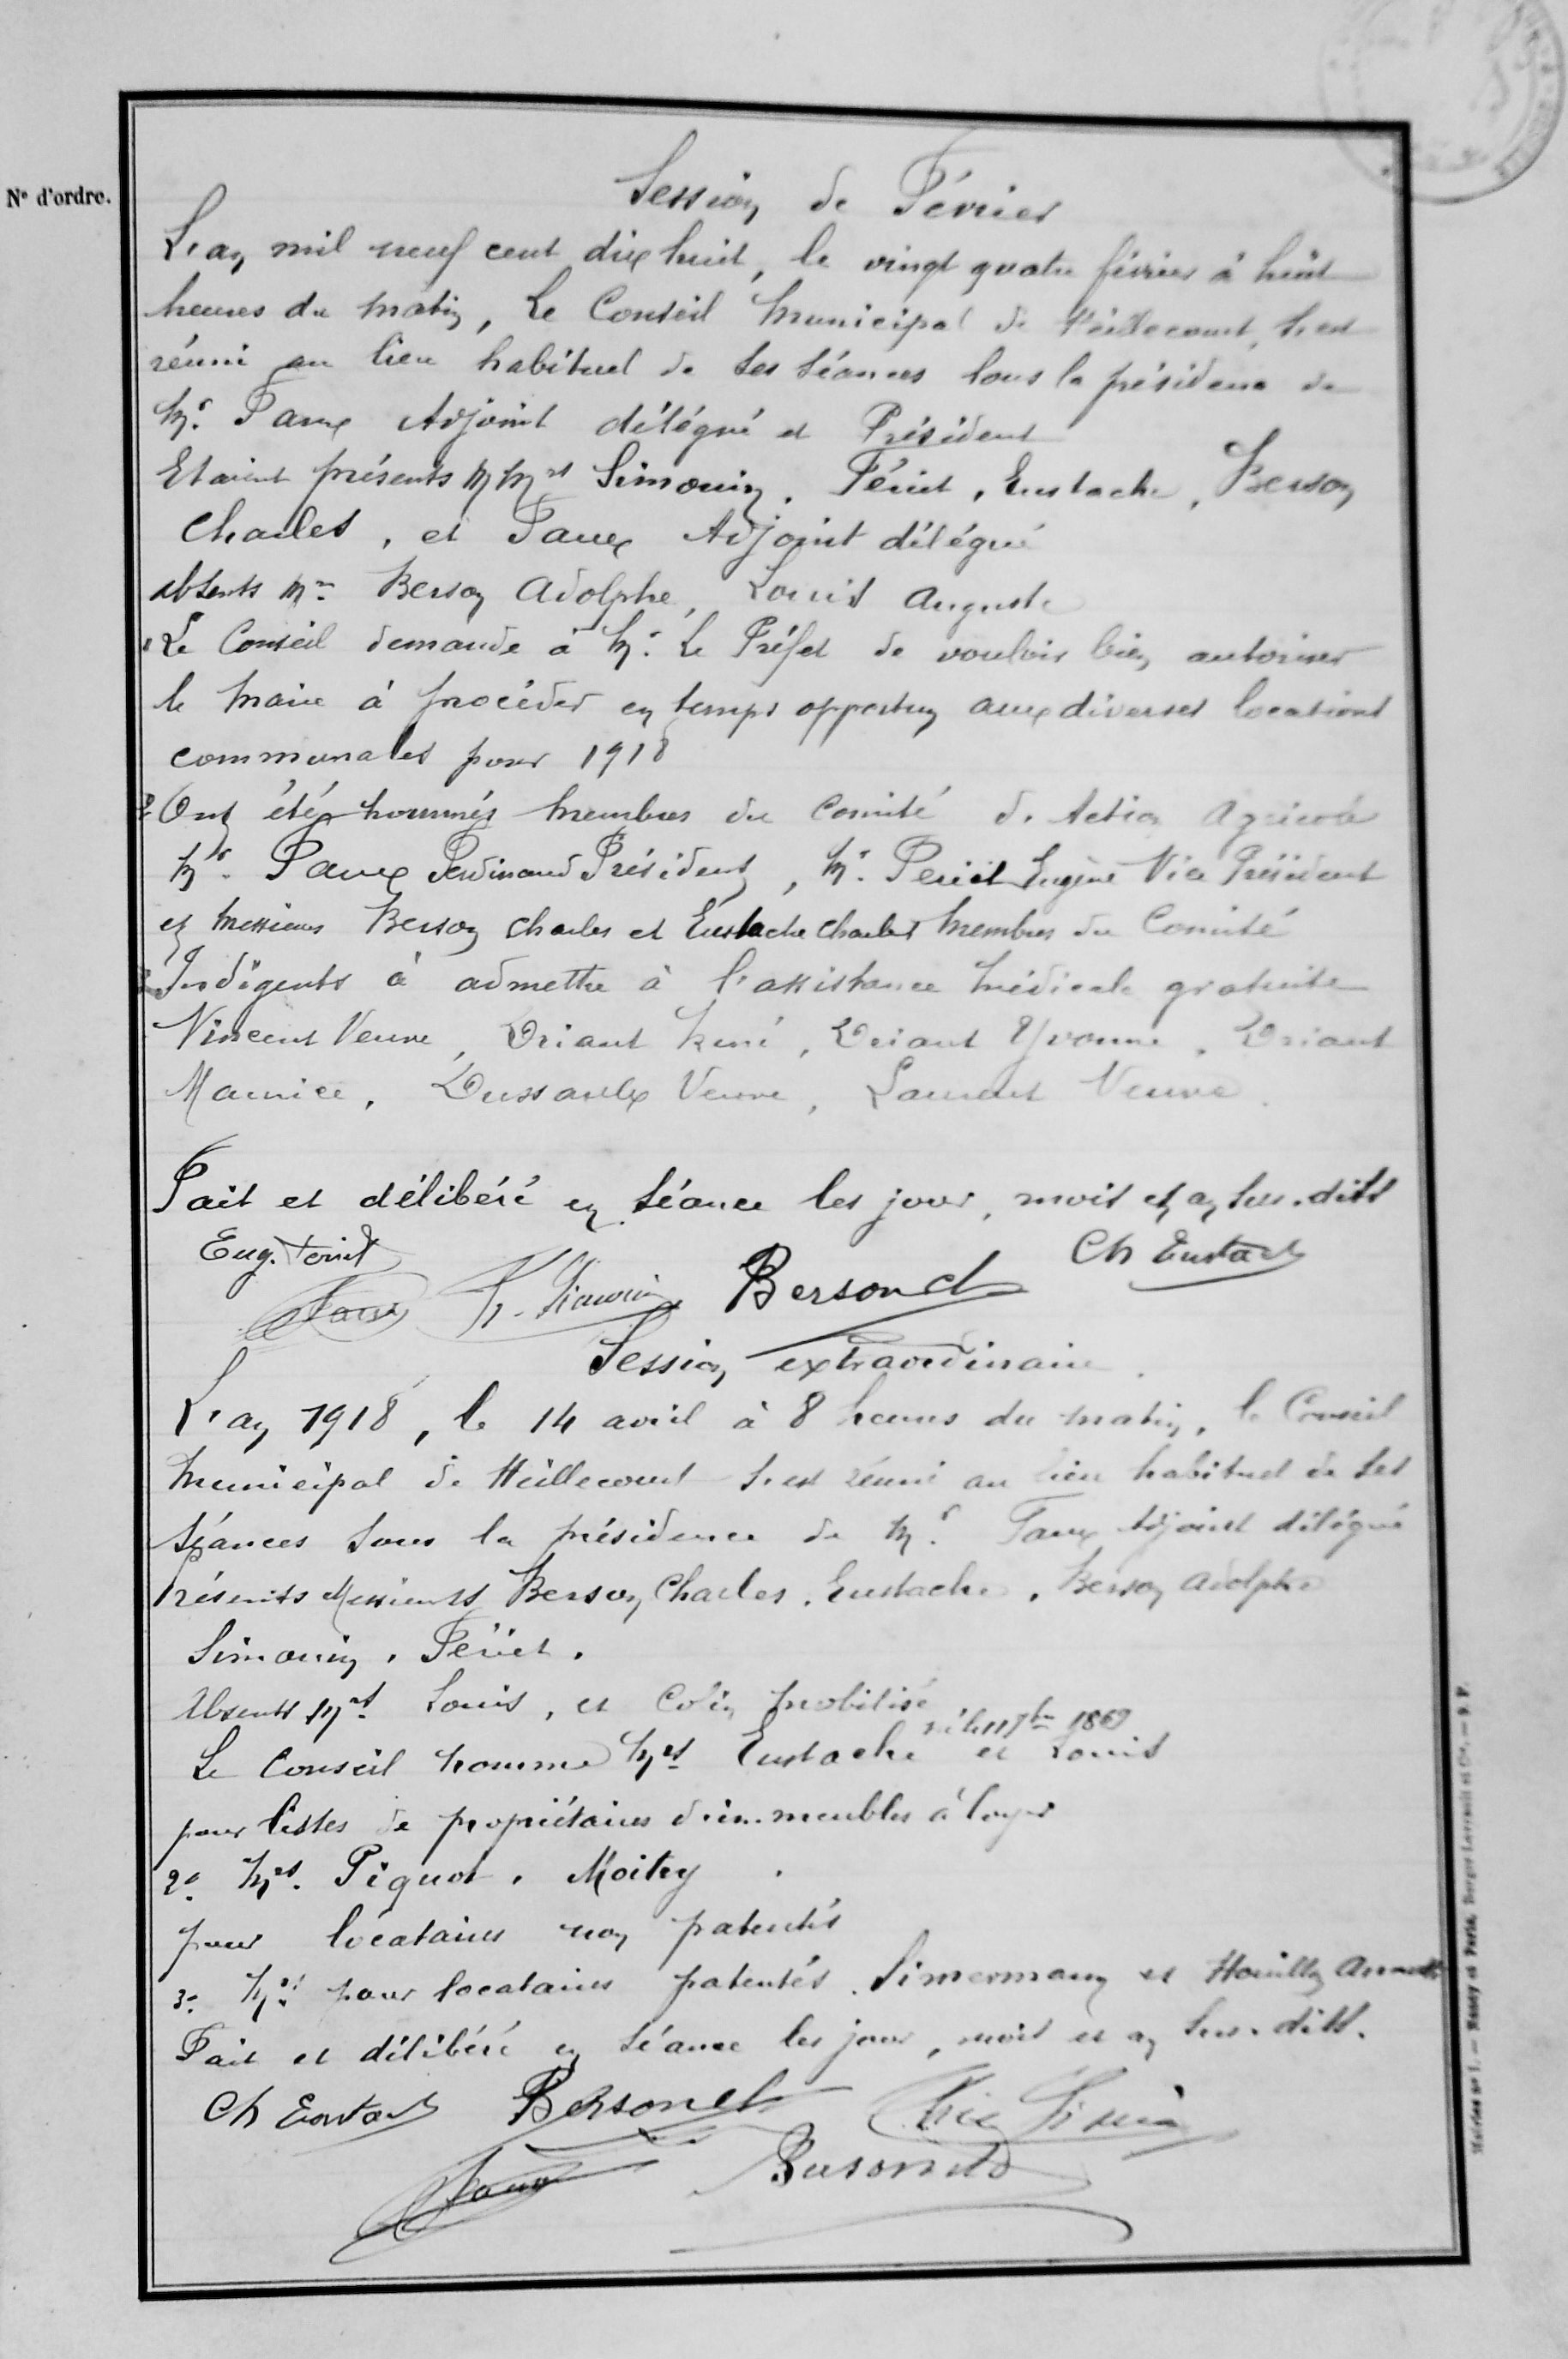 N° d'ordre.
Session de Février
L'an mil neuf cent dix huit, le vingt quatre février à huit
heures du matin, Le Conseil Municipal de Heillecourt, s'est
réuni au lieu habituel de ses séances sous la présidence de
Mr. Faux Adjoint délégué et Président
Etaient présents MMrs Simonin, Fériet, Eustache, Berson
Charles, et Faux Adjoint délégué
absents Mrs Berson Adolphe, Louis Auguste
1 Le Conseil demande à Mr. Le Préfet de vouloir bien autoriser
le Maire à procéder en temps opportun aux diverses locations
communales pour 1918
2 Ont été nommés membres du Comité d'Action Agricole
Mr. Faux Ferdinand Président, Mr. Feriet Eugène Vice Président
et Messieurs Berson Charles et Eustache Charles Membres du Comité
3 Indigents à admettre à l'assistance médicale gratuite
Vincent Veuve, Driant René, Driant Yvonne, Driant
Maurice, Dussaulx Veuve, Laurent Veuve.
Fait et délibéré en séance les jour, mois et an sus-dits
Eug. Feriet
Ch Eustach
Faux Simonin Berson ch
Session extraordinaire.
L'an 1918, le 14 avril à 8 heures du matin, le Conseil
Municipal de Heillecourt s'est réuni au lieu habituel de ses
séances sous la présidence de Mr. Faux Adjoint délégué
Présents Messieurs Berson Charles, Eustache, Berson Adolphe
Simonin, Fériet.
Absents Mrs. Louis, et Colin mobilisé
Le Conseil nomme Mrs Eustache né le 11 1869 et Louis
pour listes de propriétaires d'immeubles à loyer
2° Mrs. Piquot, Moitry
pour locataires non patentés
3° Mrs pour locataires patentés. Simermann et Houillon
Fait et délibéré en séance les jour, mois et an sus-dits.
Ch Eustach Berson ch
Faux Berson
Nancy et Paris, Berger-Levrault et Cie.